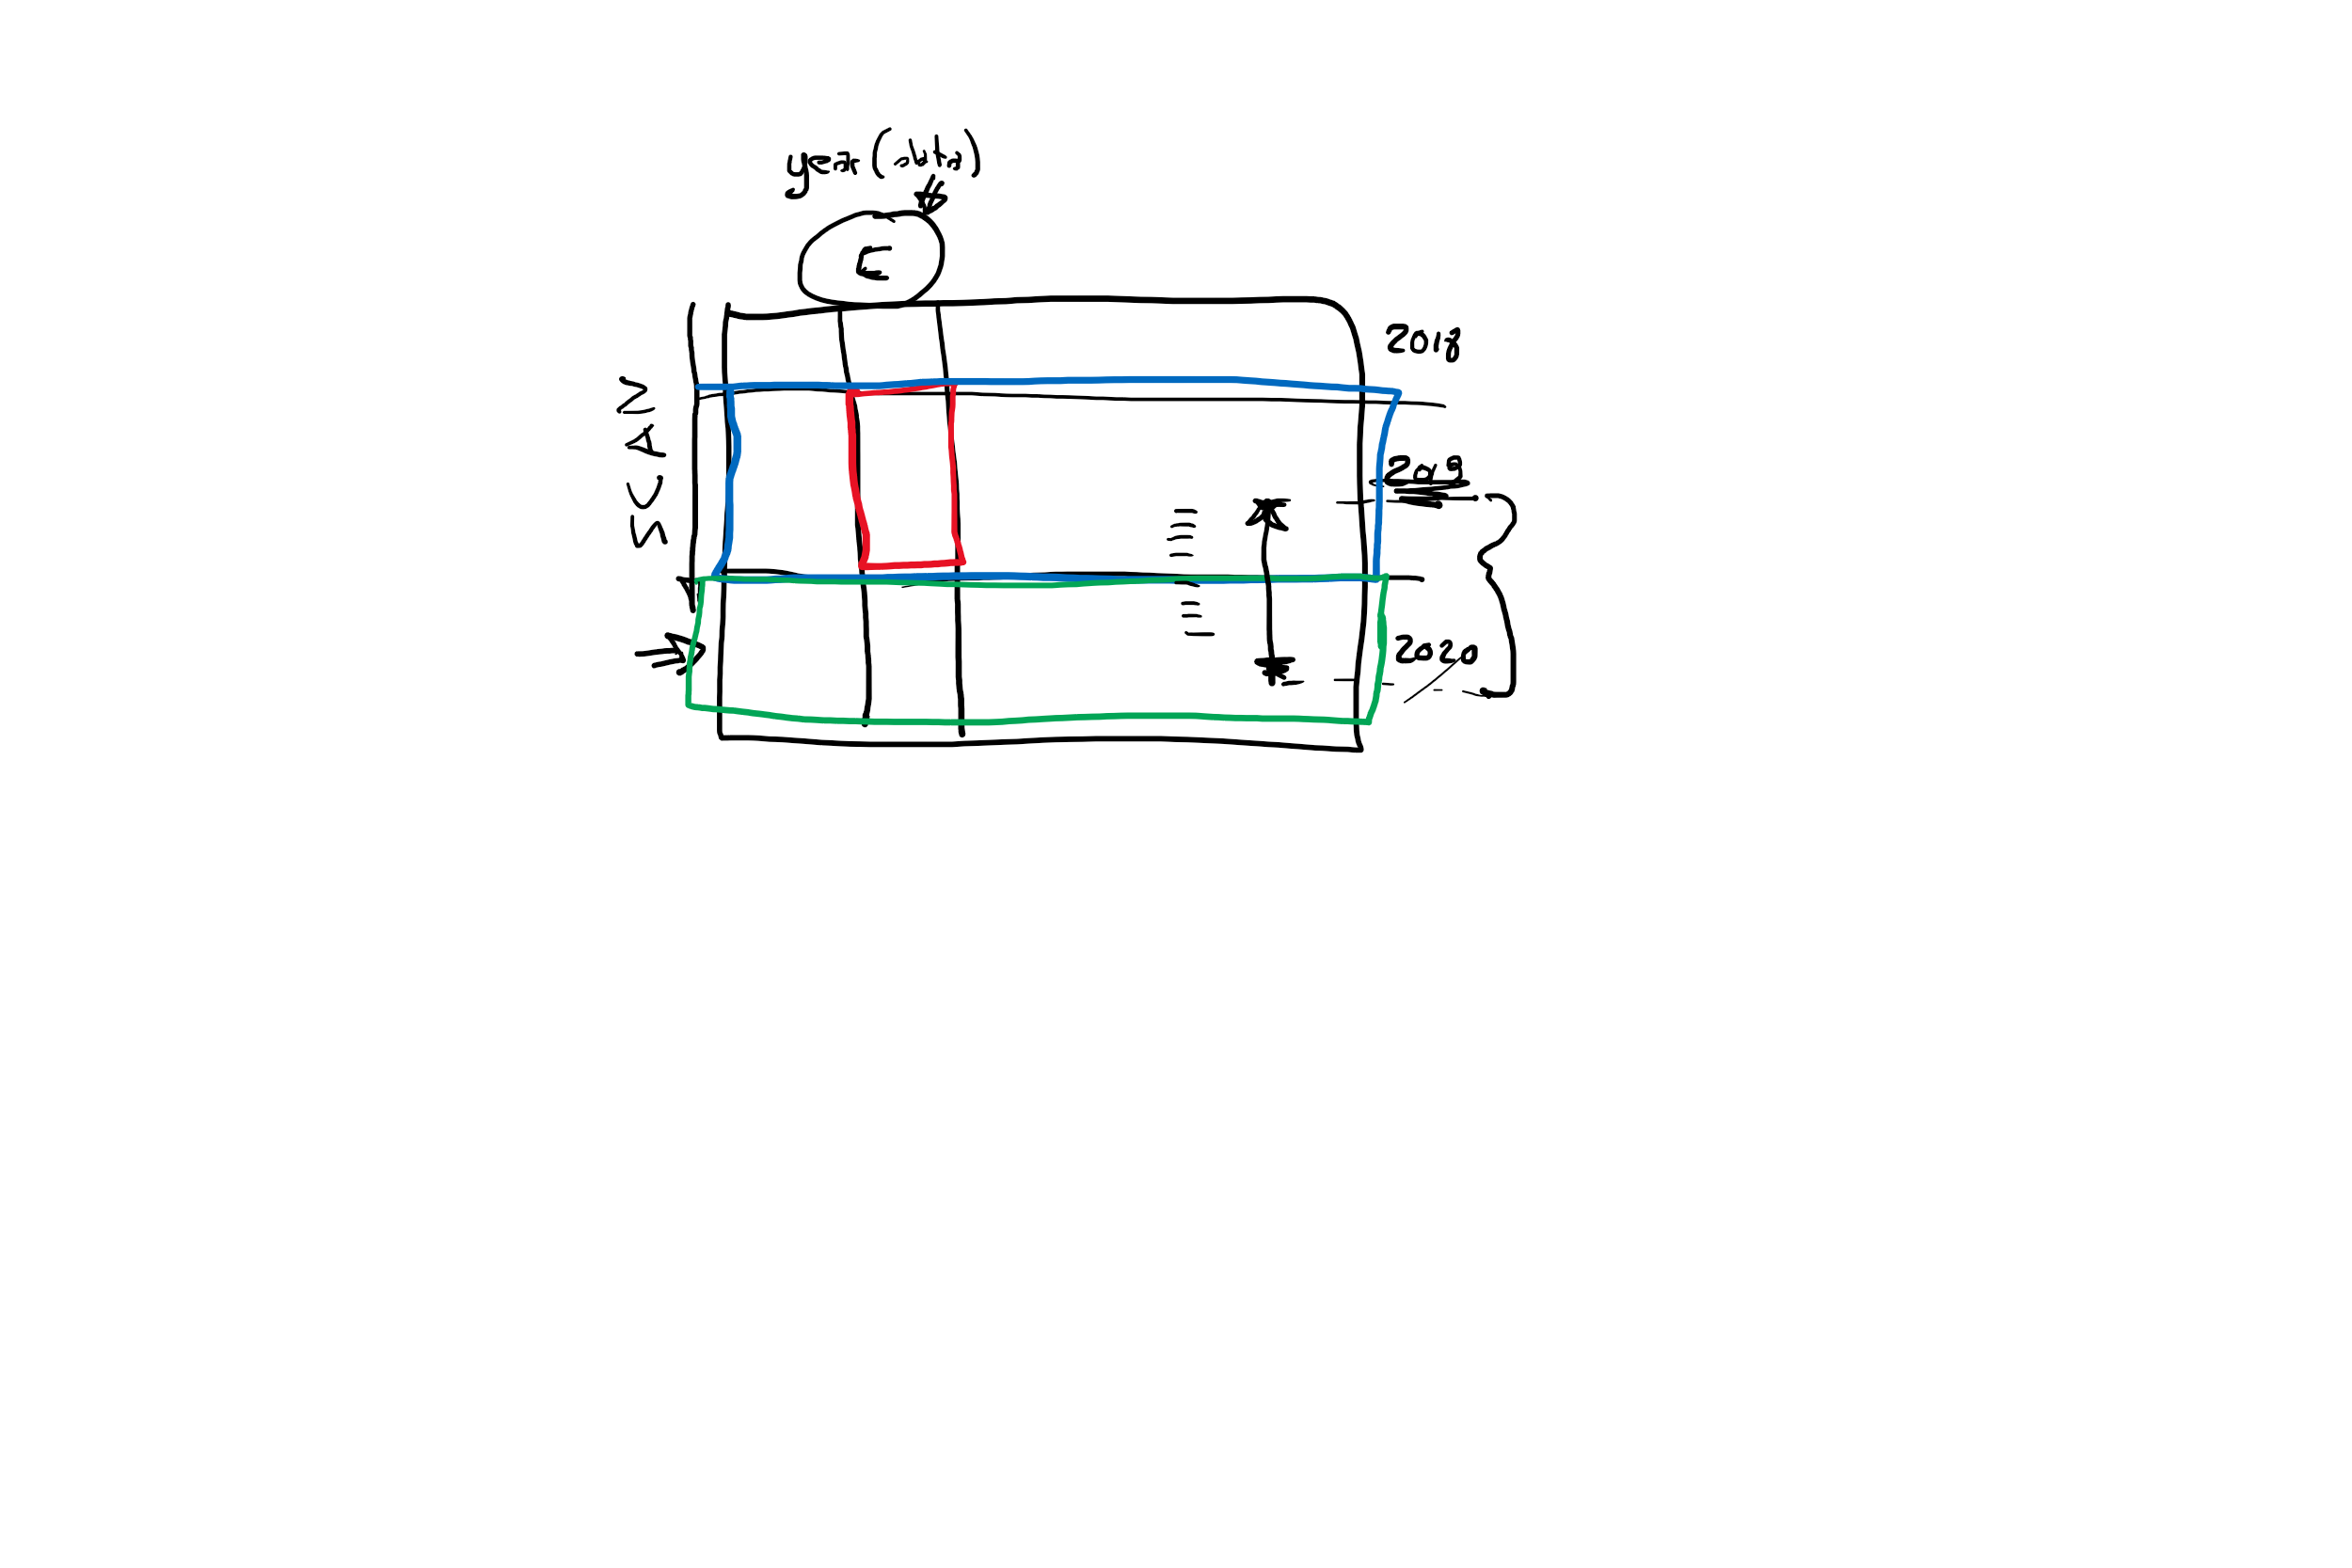 year(data)
E
2018
2019
2020